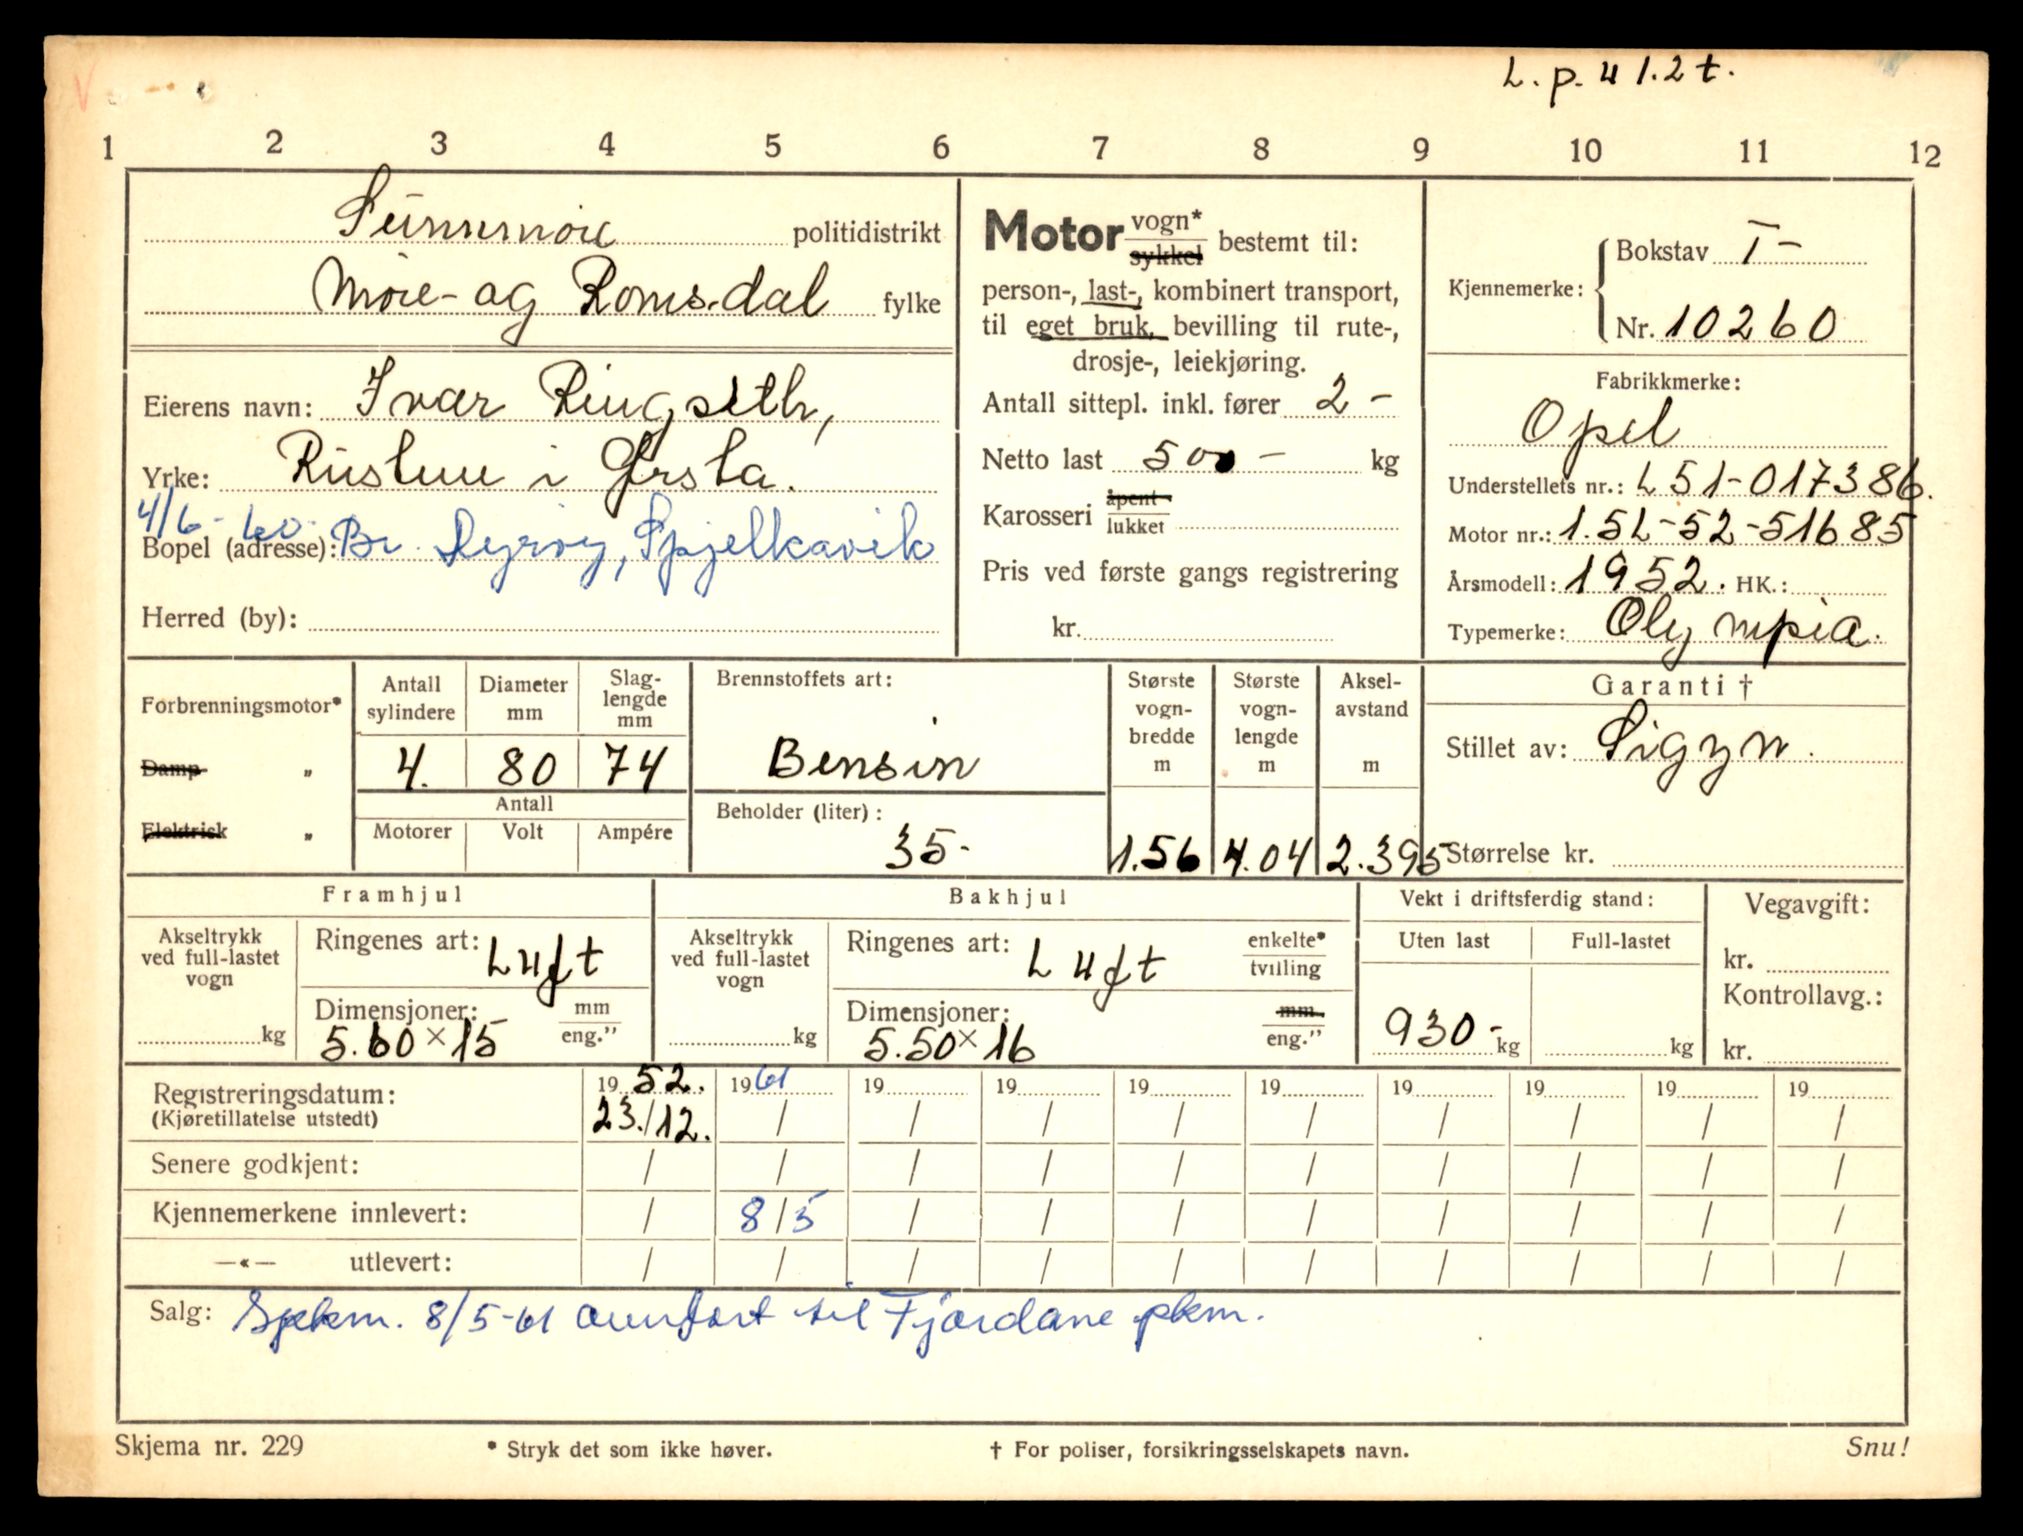 V
L. p. 4 1.2 t.
1 2 3 4 5 6 7 8 9 10 11 12
Sunnmøre politidistrikt
Møre- og Romsdal fylke
Eierens navn: Ivar Ringseth,
Yrke: Rustene i Ørsta.
4/6-60.
Bopel (adresse): Br. Dyrøy, Spjelkavik
Herred (by):
Motor vogn*
sykkel bestemt til:
person-, last-, kombinert transport,
til eget bruk, bevilling til rute-,
drosje-, leiekjøring.
Antall sittepl. inkl. fører 2 -
Netto last 500 - kg
Karosseri åpent
lukket
Pris ved første gangs registrering
kr.
Kjennemerke: Bokstav T-
Nr. 10260
Fabrikkmerke:
Opel
Understellets nr.: L51-017386.
Motor nr.: 1.5L-52-51685
Årsmodell: 1952. HK.:
Typemerke: Olympia.
Forbrenningsmotor*
Damp "
Elektrisk "
Antall sylindere Diameter mm Slag-lengde mm
4. 80 74
Antall
Motorer Volt Ampére
Brennstoffets art:
Bensin
Beholder (liter):
35-
Største vogn-bredde m
1.56
Største vogn-lengde m
4.04
Aksel-avstand m
2.395
Garanti †
Stillet av: Sigyn.
Størrelse kr.
Framhjul
Akseltrykk ved full-lastet vogn
kg
Ringenes art: Luft
Dimensjoner: mm
5.60×15 eng."
Bakhjul
Akseltrykk ved full-lastet vogn
kg
Ringenes art: Luft enkelte*
tvilling
Dimensjoner: mm
5.50×16 eng."
Vekt i driftsferdig stand:
Uten last Full-lastet
930- kg kg
Vegavgift:
kr.
Kontrollavg.:
kr.
Registreringsdatum: 19 52. 19 61 19 19 19 19 19 19 19 19
(Kjøretillatelse utstedt) 23./12. / / / / / / / / /
Senere godkjent: / / / / / / / / / /
Kjennemerkene innlevert: / 8/5 / / / / / / / /
—«— utlevert: / / / / / / / / / /
Salg: Spkm. 8/5-61 overført til Fjordane pkm.
Skjema nr. 229 * Stryk det som ikke høver. † For poliser, forsikringsselskapets navn. Snu!